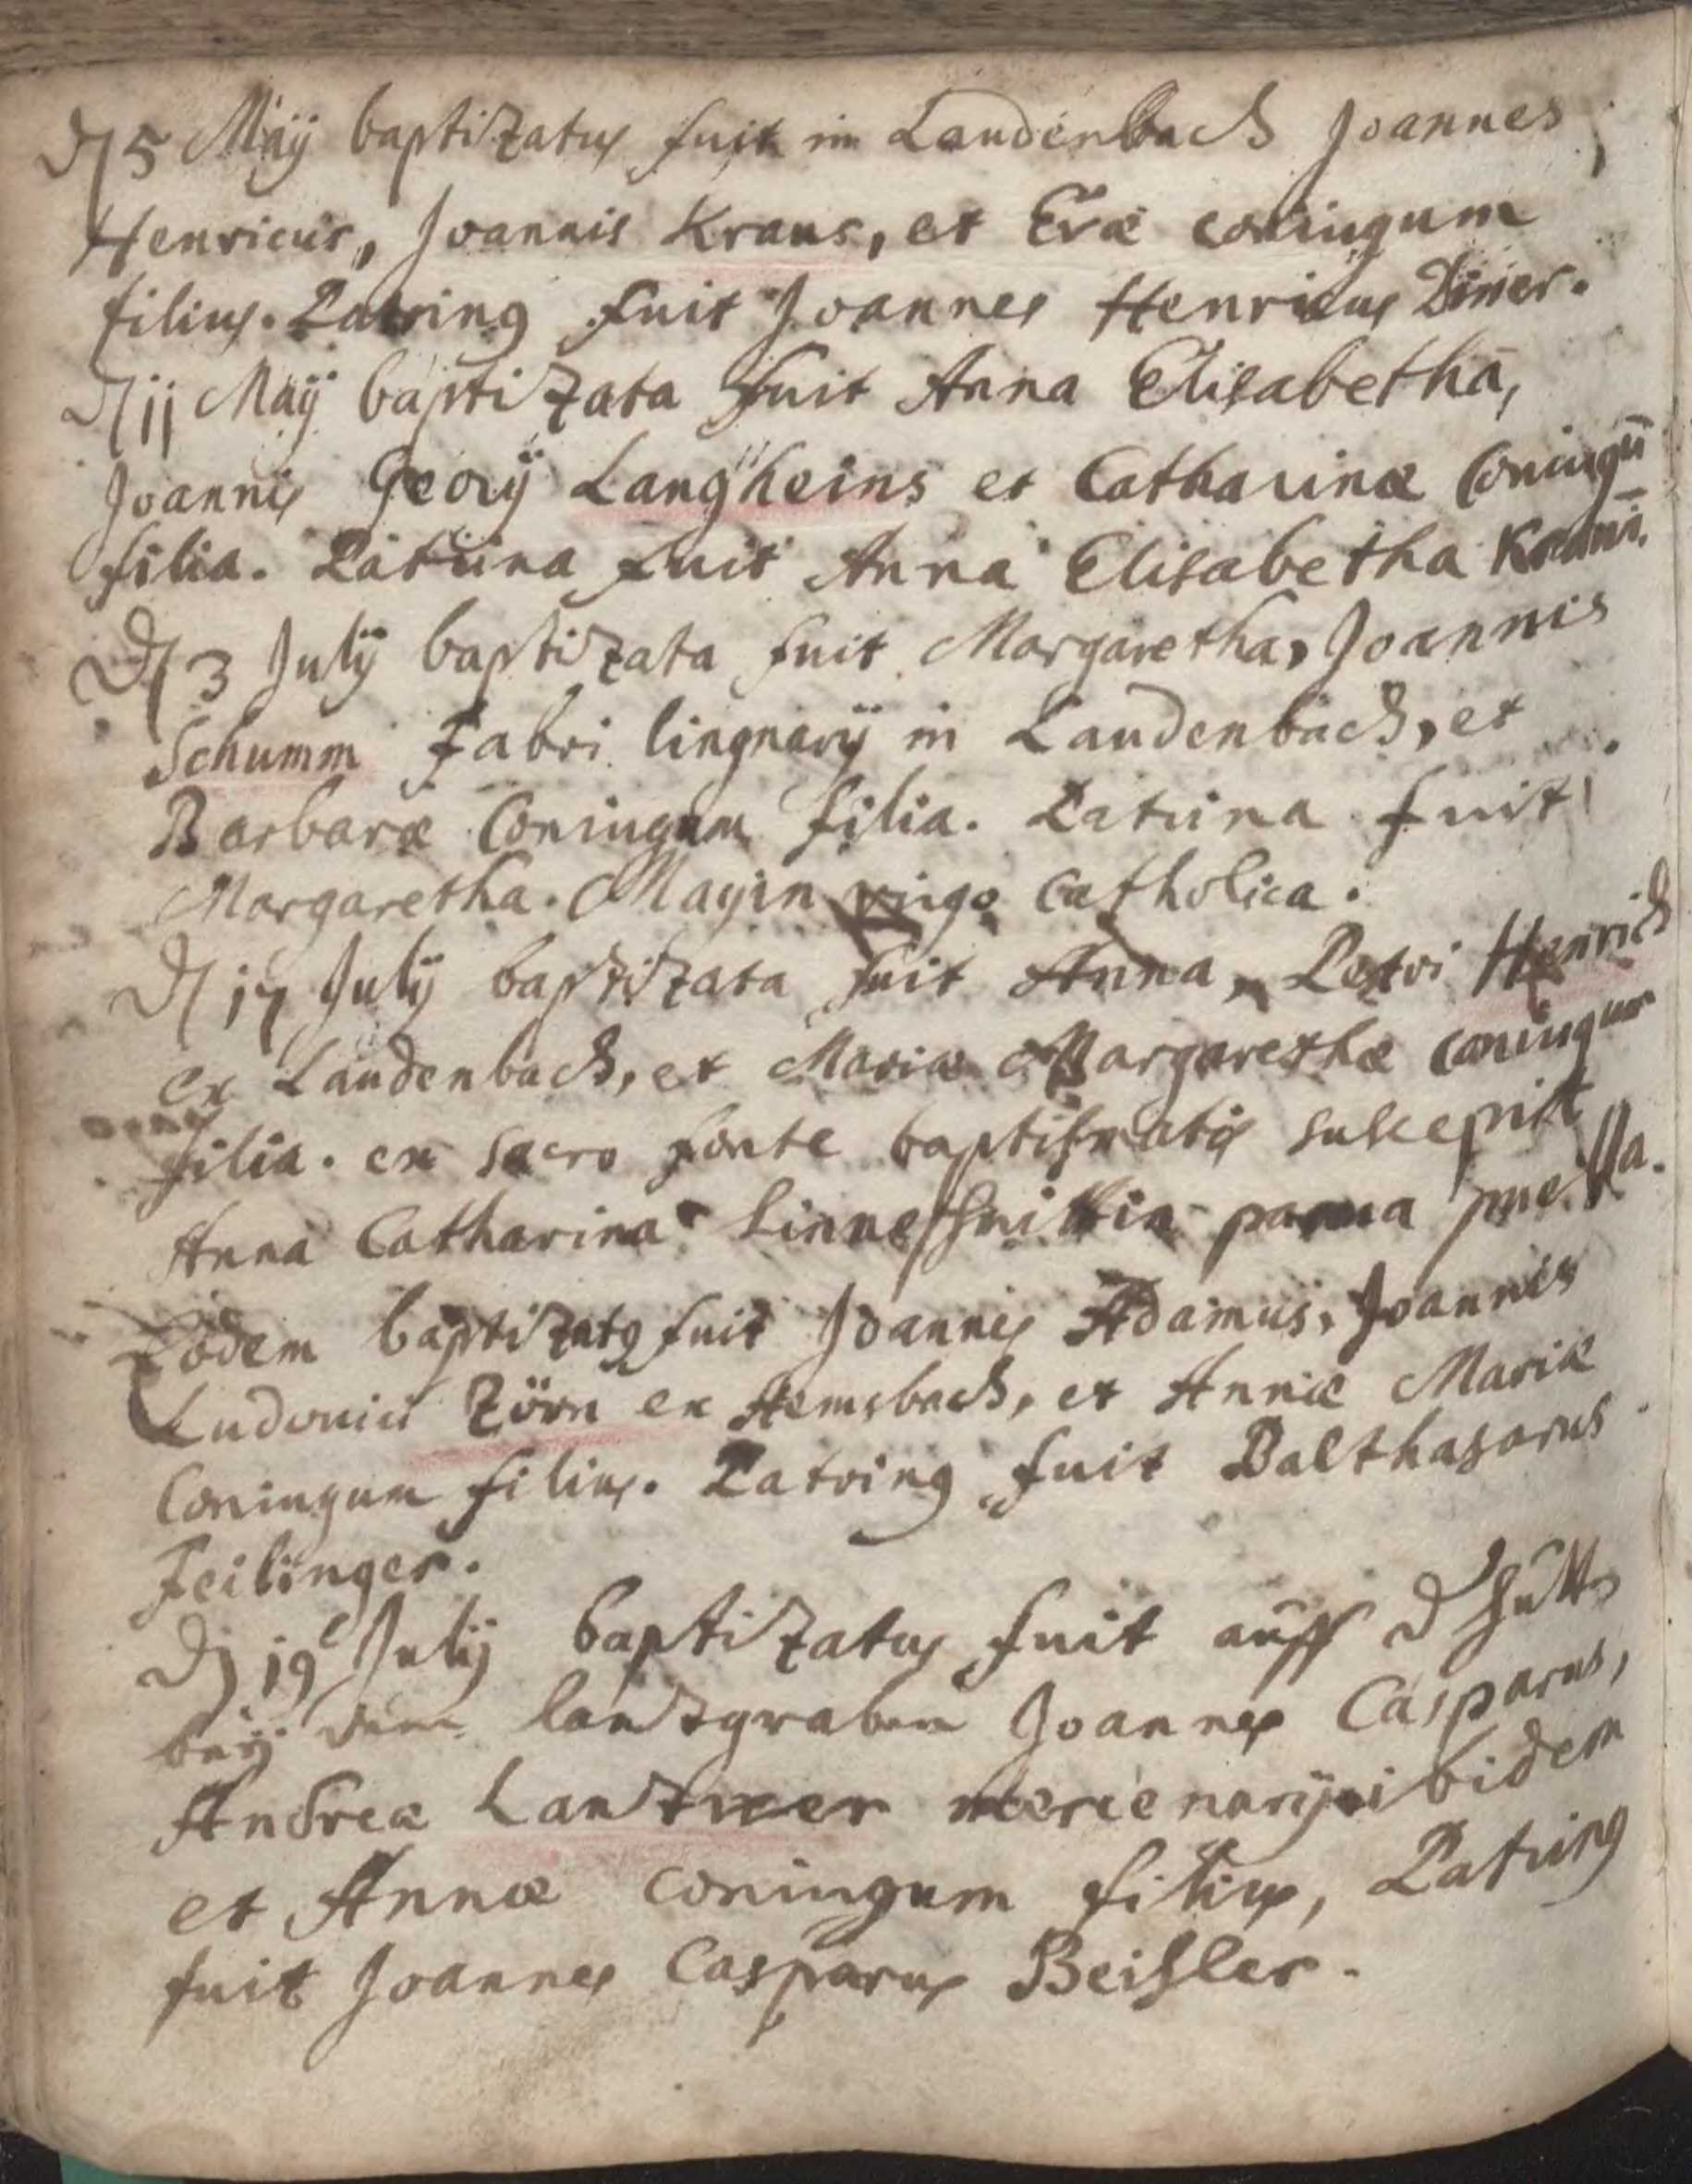 D 5 Maÿ baptizatus fuit in Laudenbach Joannes
Henricus, Joannis Kraus, et Evæ coniugum
filius. Patrinꝰ fuit Joannes Henricus
D 11 Maÿ baptizata fuit Anna Elisabetha,
Joannis Georÿ Langheins et Catharinæ Coniugū
filia. Patrina fuit Anna Elisabetha
D 3 Julÿ baptizata fuit Margaretha, Joannis
Schumm Fabri lingnarÿ in Laudenbach, et
Barbaræ Coniugum filia. Patrina fuit
Margaretha. Mayin virgo Catholica.
D 17 Julÿ baptizata fuit Anna, Petri Henrich
ex Laudenbach, et Mariæ Margarethæ coniugum
filia. ex sacro fonte baptismatis suscepit
Anna Catharina parua puella.
Eodem baptizatꝰ fuit Joannes Adamus, Joannis
Ludouici Zörn ex Hemsbach, et Annæ Mariæ
Coniugum filius. Patrinꝰ fuit Balthasarus
Feilinger.
D 19 Julÿ baptizatus fuit auff d hütt
beÿ dem landtgraben Joannes Casparus,
Andreæ mercenarÿ ibidem
et Annæ coniugum filius, Patrinꝰ
fuit Joannes Casparus Beisler.